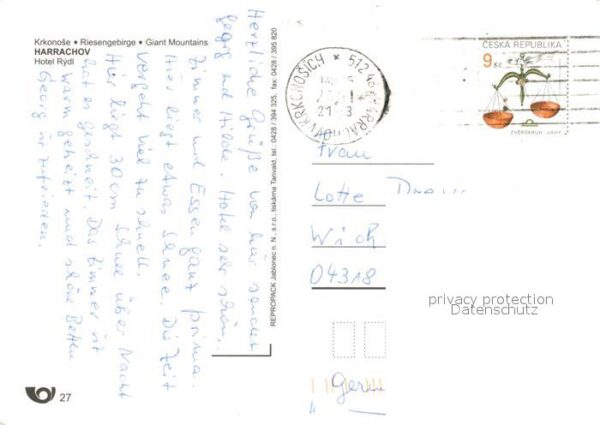 Krkonoše • Riesengebirge • Giant Mountains
HARRACHOV
Hotel Rýdl
Herzliche Grüße von hier sendet
Georg und Hilde. Hotel sehr schön,
Zimmer und Essen ganz prima.
Hier liegt etwas Schnee. Die Zeit
vergeht viel zu schnell.
Hier liegt 30 cm Schnee über Nacht
hat es geschneit. Das Zimmer ist
warm geheizt und schöne Betten
Georg ist zufrieden.
REPROPACK Jablonec n. N., s.r.o., tiskárna Tanvald, tel. 0428 / 394 325, fax. 0428 / 395 820
27
512 46
ČESKÁ REPUBLIKA
9 Kč
ZVĚROKRUH - VÁHY
Frau
Lotte
04318
Germ
privacy protection
Datenschutz